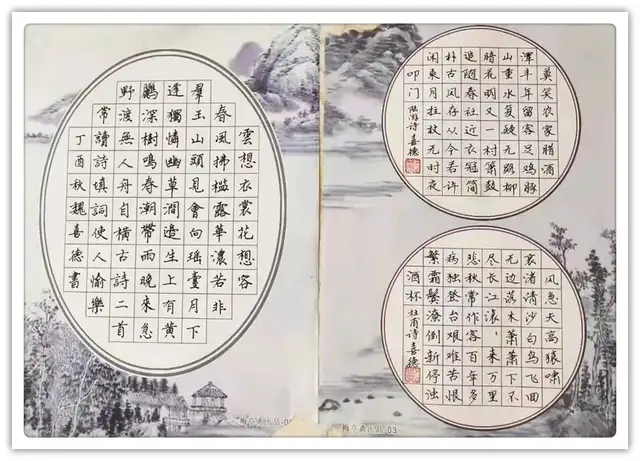 雲想衣裳花想容
春風拂檻露華濃若非
羣玉山頭見會向瑤臺月下
逢獨憐幽草澗邊生上有黃
鸝深樹鳴春潮帶雨晚來急
野渡無人舟自橫古詩二首
常讀詩填詞使人愉樂
丁酉秋魏喜德書
莫笑农家腊酒
浑丰年留客足鸡豚
山重水复疑无路柳
暗花明又一村箫鼓
追随春社近衣冠简
朴古风存从今若许
闲来月拄杖无时夜
叩门
陆游诗 喜德
风急天高猿啸
哀渚清沙白鸟飞回
无边落木萧萧下不
尽长江滚、来万里
悲秋常作客百年多
病独登台艰难苦恨
繁霜鬓潦倒新停浊
酒杯 杜甫诗 喜德